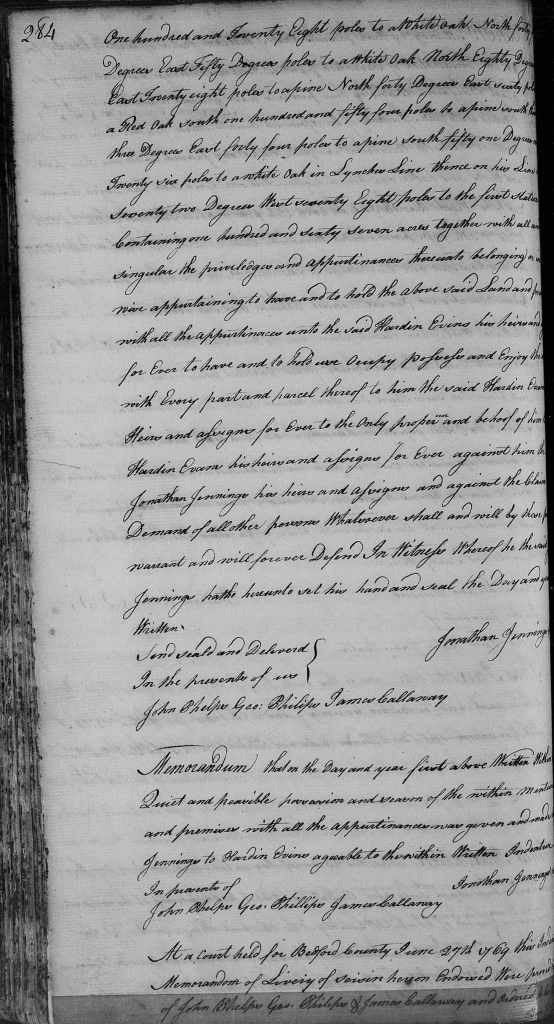 284
One hundred and Twenty Eight poles to a White Oak North forty
Degrees East Fifty Degrees poles to a White Oak North Eighty Degrees
East Twenty eight poles to a pine North forty Degrees East sixty poles
a Red Oak south one hundred and fifty four poles to a pine south
three Degrees East forty four poles to a pine south fifty one Degrees
Twenty six poles to a White Oak in Lynches Line thence on his Line
Seventy two Degrees West seventy Eight poles to the first station
Containing one hundred and sixty seven acres together with all and
singular the priviledges and appurtinances thereunto belonging or
wise appurtaining to have and to hold the above said Land and
with all the appurtinaces unto the said Hardin Evins his heirs and
for Ever to have and to hold use Ocupy Possess and Enjoy the
with Every part and parcel thereof to him the said Hardin Evans
Heirs and assigns for Ever to the Only proper and behoof of him
Hardin Evans his heirs and assigns for Ever against him the
Jonathan Jennings his heirs and assigns and against the Claim
Demand of all other persons Whatsoever shall and will by these
warrant and will forever Defend In Witness Whereof he the said
Jennings hathe hereunto set his hand and seal the Day and
Written.
Sind seald and Deleverd
Jonathan Jennings
In the presents of us
John Phelps Geo: Philips James Callaway
Memorandum that on the Day and year first above Written
Quiet and peacible possession and seasin of the within
and premises with all the appurtinances was given and made
Jennings to Hardin Evins agreable to the within Written Indenture
In presents of
Jonathan Jennings
John Phelps Geo: Phillips James Callaway
At a court held for Bedford County June 27th 1769 this
Memorandum of Livery of seisin hereon Endorsed Were proved
of John Phelps Geo: Philips & James Callaway and ordered